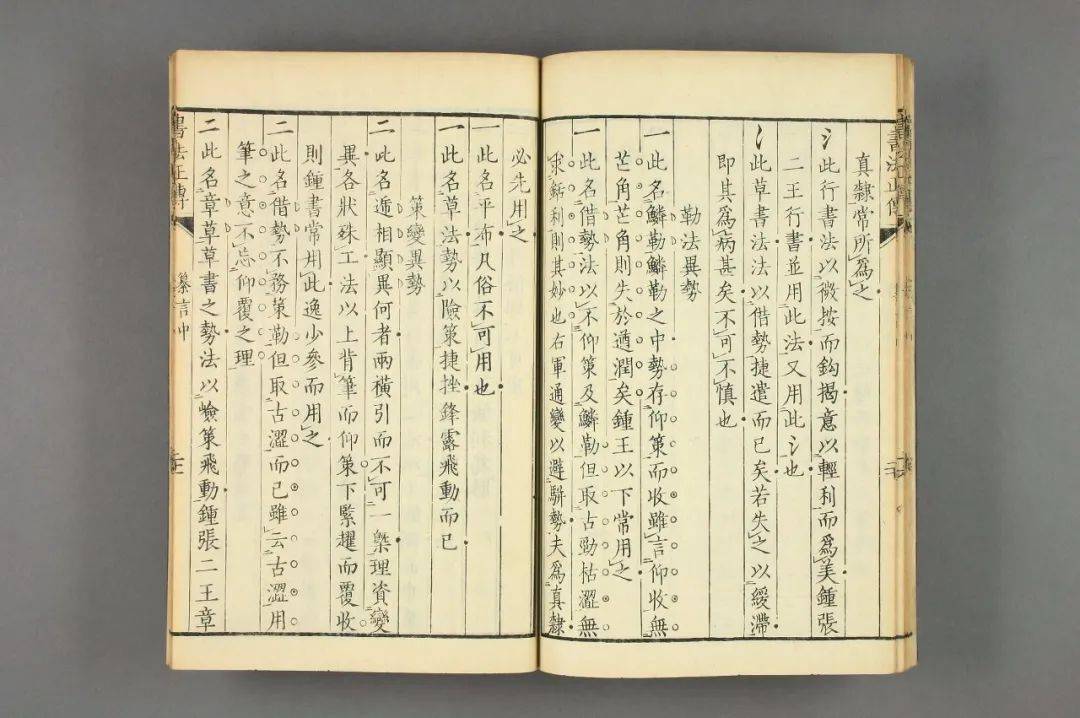 真隸常所爲之
氵此行書法以微按而鈎揭意以輕利而爲美鍾張
二王行書並用此法又用此氵也
此草書法法以借勢捷遣而已矣若失之以緩滯
即其爲病甚矣不可不慎也
勒法異勢
一此名鱗勒鱗勒之中勢存仰策而收雖言仰收無
芒角芒角則失於遒潤矣鍾王以下常用之
一此名借勢法以不仰策及鱗勒但取古勁枯澀無
求銛利則其妙也右軍通變以避駢勢夫爲真隸
必先用之
一此名平布凡俗不可用也
一此名草法勢以險策捷挫鋒露飛動而已
策變異勢
二此名遞相顯異何者兩橫引而不可一槩理資變
異各狀殊工法以上背筆而仰策下緊趯而覆收
則鍾書常用此逸少參而用之
二此名借勢不務策勒但取古澀而已雖云古澀用
筆之意不忘仰覆之理
二此名章草草書之勢法以險策飛動鍾張二王章
書法正傳
纂言中